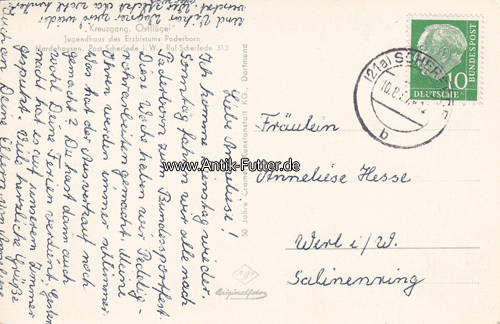 Kreuzgang, Ostflügel
Jugendhaus des Erzbistums Paderborn
Hardehausen, Post Scherfede i. W. Ruf Scherfede 313
Liebe Anneliese!
Ich komme Dienstag wieder.
Sonntag fahren wir alle nach
Paderborn zum Bundessportfest.
Diese Woche haben wir Peddig-
rohrarbeiten gemacht. Meine
Ohren werden immer schlimmer.
Was hat der Ausverkauf noch
gemacht? Du hast dann auch
wohl Deine Ferien verdient. Gestern
Nacht hat es in unserem Zimmer
gespukt. Viele herzliche Grüße
auch an Deine Eltern von Anneliese
und
50 Jahre Kunstanstalt KG., Dortmund
Originalfoto
(21a) SCHERFEDE
10.8.
b
DEUTSCHE
BUNDESPOST
10
Fräulein
Anneliese Hesse
Werl i/W.
Salinenring
www.Antik-Futter.de